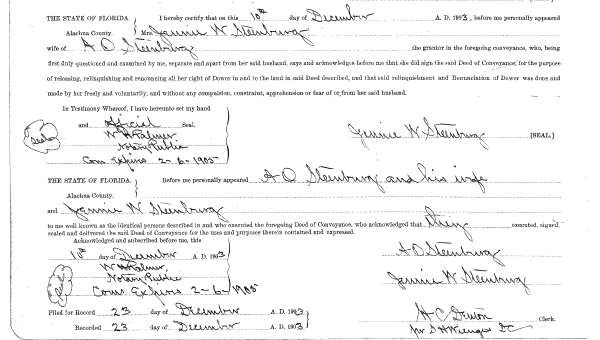 THE STATE OF FLORIDA. } I hereby certify that on this 10th day of December A. D. 1903, before me personally appeared
Alachua County. Mrs. Jennie W Steenburg
wife of A O Steenburg the grantor in the foregoing conveyance, who, being
first duly questioned and examined by me, separate and apart from her said husband, says and acknowledges before me that she did sign the said Deed of Conveyance for the purpose
of releasing, relinquishing and renouncing all her right of Dower in and to the land in said Deed described, and that said relinquishment and Renunciation of Dower was done and
made by her freely and voluntarily, and without any compulsion, constraint, apprehension or fear of or from her said husband.
In Testimony Whereof, I have hereunto set my hand
and official Seal.
Seal
W H Palmer
Notary Public
Com. Expires 2-6-1905
Jennie W Steenburg [SEAL.]
THE STATE OF FLORIDA. } Before me personally appeared A O Steenburg and his wife
Alachua County.
and Jennie W Steenburg
to me well known as the identical persons described in and who executed the foregoing Deed of Conveyance, who acknowledged that they executed, signed,
sealed and delivered the said Deed of Conveyance for the uses and purposes therein contained and expressed.
Acknowledged and subscribed before me, this
10th day of December A. D. 1903
W H Palmer,
Notary Public
Com. Expires 2-6-1905
Seal
A O Steenburg
Jennie W Steenburg
Filed for Record 23 day of December A. D. 1903
Recorded 23 day of December A. D. 1903
H C Clerk.